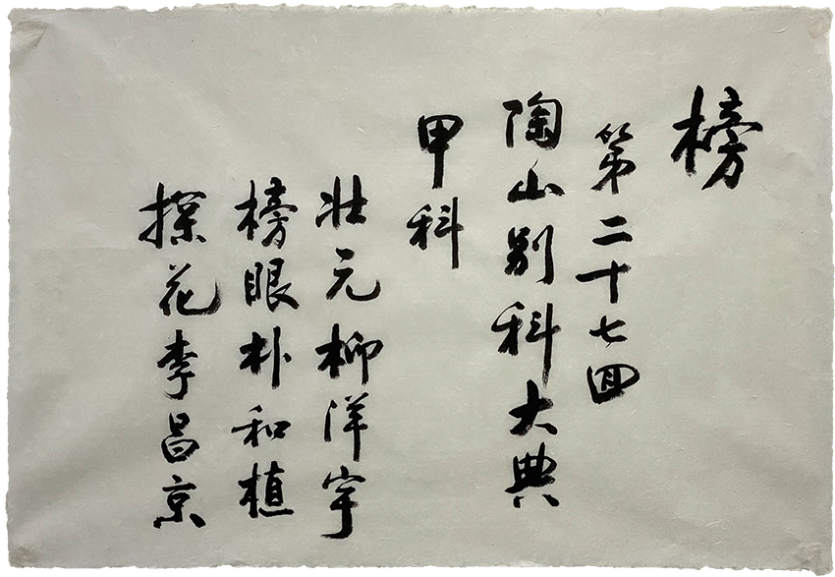 榜
第二十七回
陶山別科大典
甲科
壯元柳洋宇
榜眼朴和植
探花李昌京